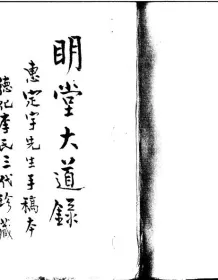 明堂大道錄
惠定宇先生手稿本
德化李氏三代珍藏